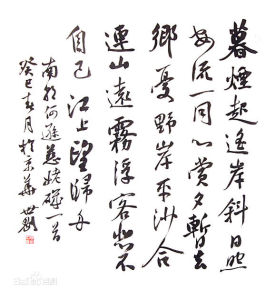 暮煙起遙岸斜日照
安流一同心賞夕暫去
鄉憂野岸平沙合
連山遠霧浮客悲不
自已江上望歸舟
南朝何遜慈姥磯一首
癸巳春月於京華世